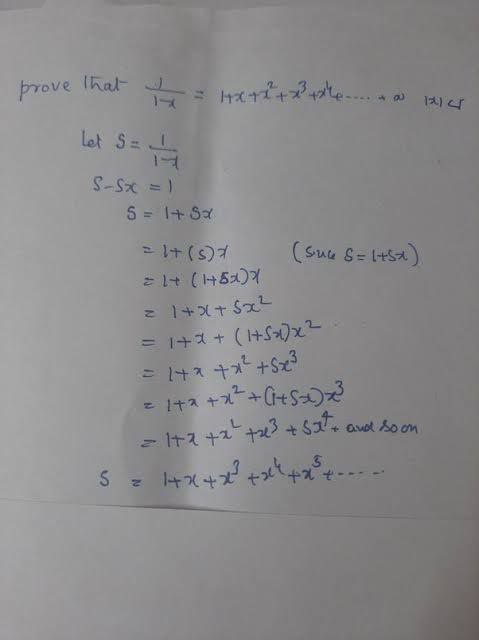 prove that 1/(1-x) = 1+x+x²+x³+x⁴+.....+∞ |x|<1
Let S = 1/(1-x)
S-Sx = 1
S = 1+Sx
= 1+(S)x (Since S=1+Sx)
= 1+(1+Sx)x
= 1+x+Sx²
= 1+x+(1+Sx)x²
= 1+x+x²+Sx³
= 1+x+x²+(1+Sx)x³
= 1+x+x²+x³+Sx⁴+ and so on
S = 1+x+x³+x⁴+x⁵+.....